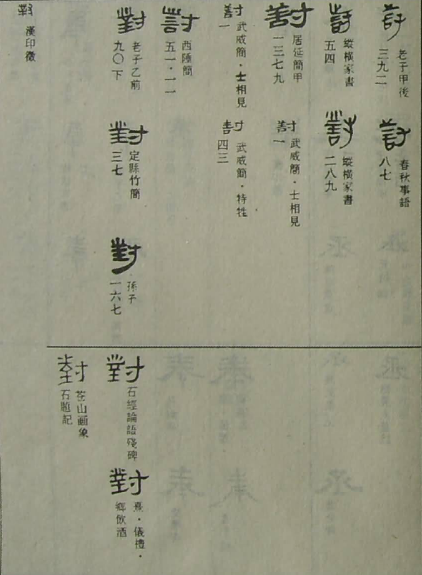 對
老子甲後
三九二
對
春秋事語
八七
對
縱橫家書
五四
對
縱橫家書
二八九
對
居延簡甲
一三七九
對
武威簡·士相見
一
對
武威簡·士相見
一
對
武威簡·特牲
四三
對
西陲簡
五一·一一
對
老子乙前
九〇下
對
定縣竹簡
三七
對
孫子
一六七
對
漢印徵
對
石經論語殘碑
對
熹·儀禮·
鄉飲酒
對
蒼山畫象
石題記